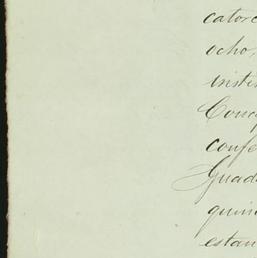 catorc
ocho,
Conc
confe
Guad
quin
estan